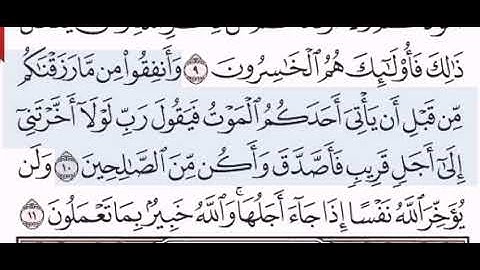 ذَٰلِكَ فَأُو۟لَٰٓئِكَ هُمُ ٱلْخَٰسِرُونَ ٩ وَأَنفِقُوا۟ مِن مَّا رَزَقْنَٰكُم
مِّن قَبْلِ أَن يَأْتِىَ أَحَدَكُمُ ٱلْمَوْتُ فَيَقُولَ رَبِّ لَوْلَآ أَخَّرْتَنِىٓ
إِلَىٰٓ أَجَلٍ قَرِيبٍ فَأَصَّدَّقَ وَأَكُن مِّنَ ٱلصَّٰلِحِينَ ١٠ وَلَن
يُؤَخِّرَ ٱللَّهُ نَفْسًا إِذَا جَآءَ أَجَلُهَا ۚ وَٱللَّهُ خَبِيرٌۢ بِمَا تَعْمَلُونَ ١١